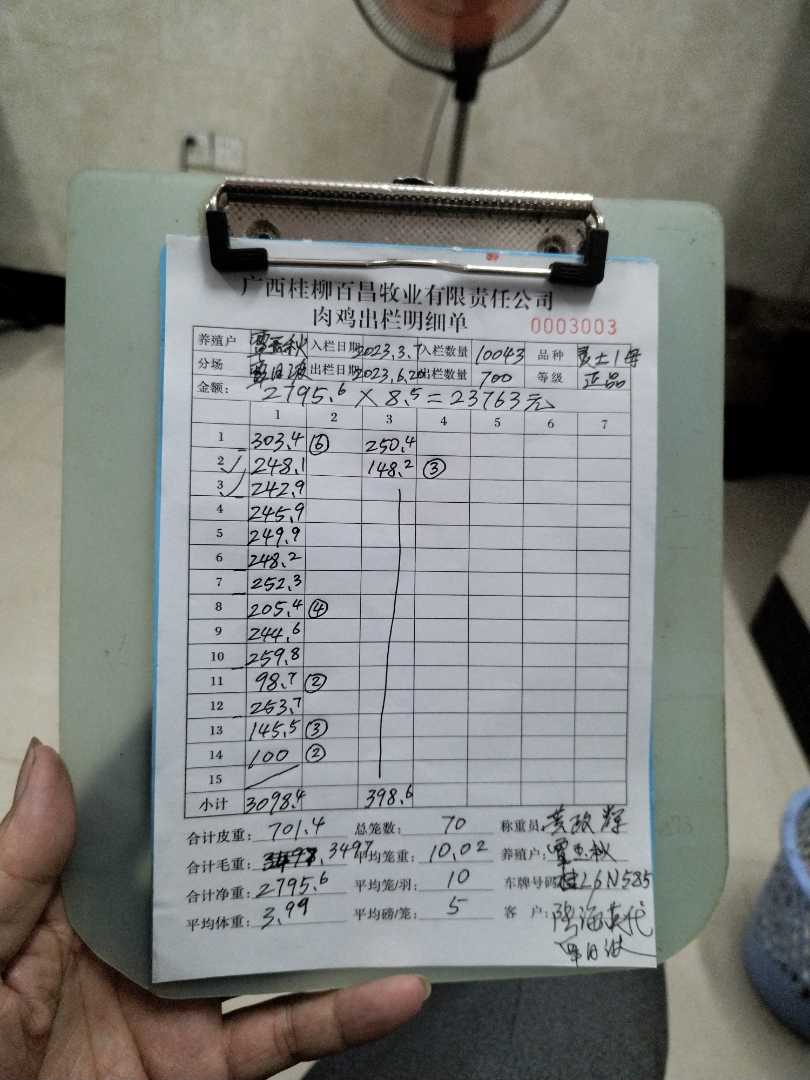 广西桂柳百昌牧业有限责任公司
肉鸡出栏明细单 0003003
养殖户 入栏日期 2023.3.7 入栏数量 10043 品种
分场 出栏日期 2023.6.20 出栏数量 700 等级 正品
金额: 2795.6 × 8.5 = 23763元
1 2 3 4 5 6 7
1 303.4 ⑥ 250.4
2 248.1 148.2 ③
3 242.9
4 245.9
5 249.9
6 248.2
7 252.3
8 205.4 ④
9 244.6
10 259.8
11 98.7 ②
12 253.7
13 145.5 ③
14 100 ②
15
小计 3098.4 398.6
合计皮重: 701.4 总笼数: 70 称重员:
合计毛重: 3497 平均笼重: 10.02 养殖户:
合计净重: 2795.6 平均笼/羽: 10 车牌号码: 桂L6N585
平均体重: 3.99 平均磅/笼: 5 客户: